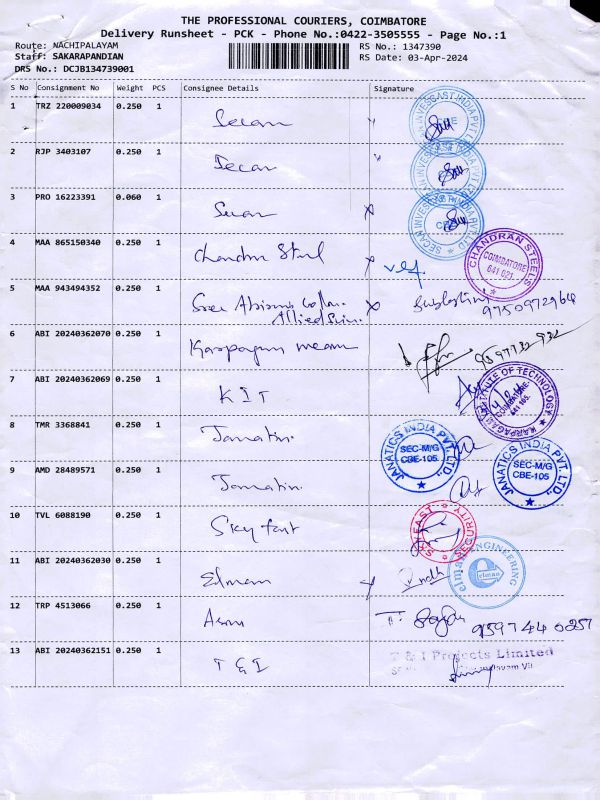 THE PROFESSIONAL COURIERS, COIMBATORE
Delivery Runsheet - PCK - Phone No.:0422-3505555 - Page No.:1
Route: NACHIPALAYAM RS No.: 1347390
Staff: SAKARAPANDIAN RS Date: 03-Apr-2024
DRS No.: DCJB134739001
S No Consignment No Weight PCS Consignee Details Signature
1 TRZ 220009034 0.250 1 Secan
2 RJP 3403107 0.250 1 Secan
3 PRO 16223391 0.060 1 Secan
SECAN INVESCAST INDIA PVT LTD
4 MAA 865150340 0.250 1 Chandra Steel
CHANDRAN STEELS COIMBATORE 641 021
5 MAA 943494352 0.250 1 Sree
Allied 9750972964
6 ABI 20240362070 0.250 1 Karpagam
7 ABI 20240362069 0.250 1 KIT
KARPAGAM INSTITUTE OF TECHNOLOGY COIMBATORE- 641 105.
8 TMR 3368841 0.250 1
JANATICS INDIA PVT. LTD., SEC-M/G CBE-105
9 AMD 28489571 0.250 1
JANATICS INDIA PVT. LTD., SEC-M/G CBE-105
10 TVL 6088190 0.250 1 Sky fast
SKY FAST SECURITY
11 ABI 20240362030 0.250 1 Elman
elman ENGINEERING elman
12 TRP 4513066 0.250 1 9597440257
13 ABI 20240362151 0.250 1 T & I
T & I Projects Limited